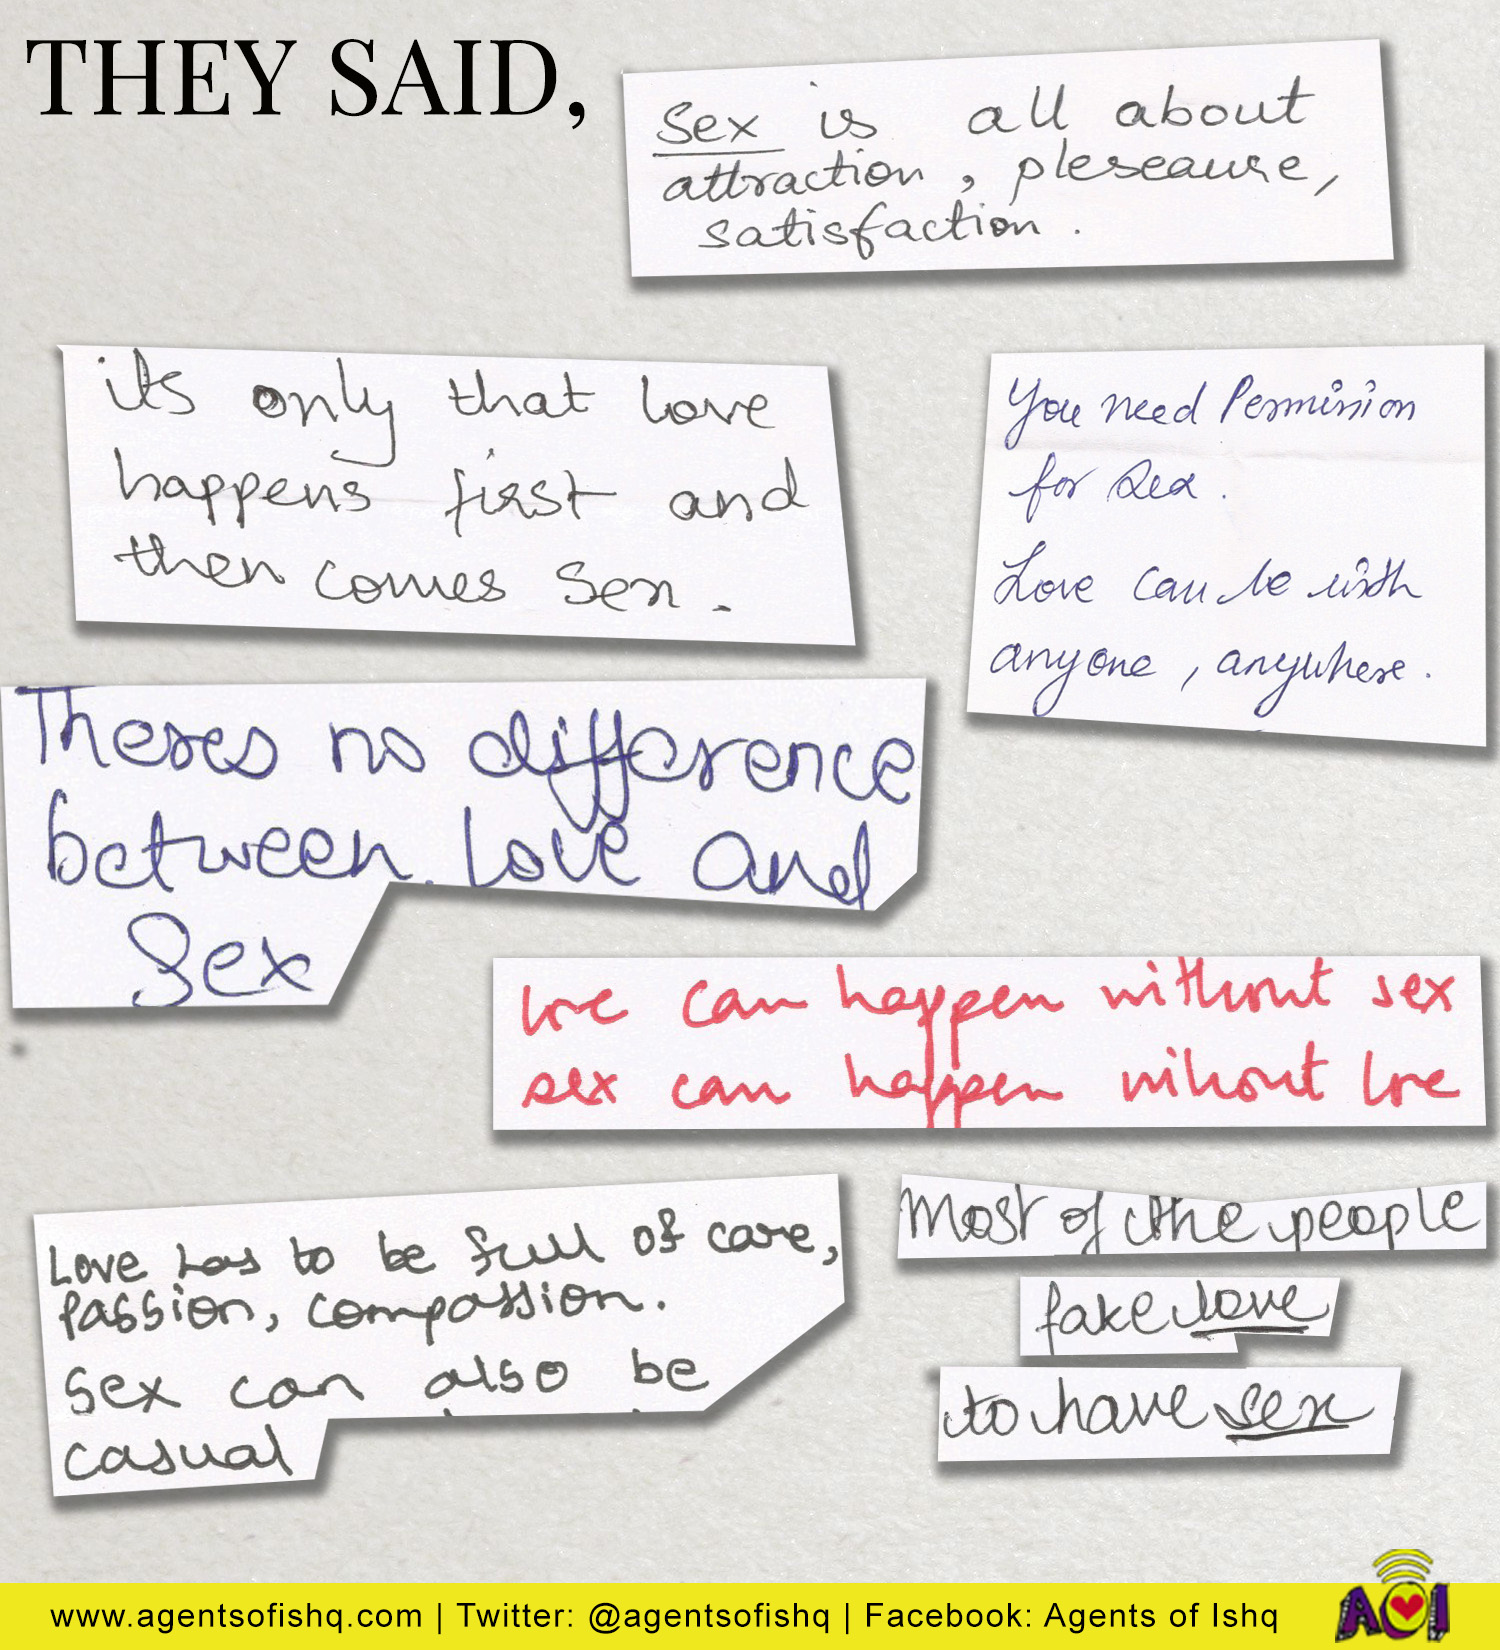 THEY SAID,
Sex is all about
attraction, pleseaure,
satisfaction.
its only that love
happens first and
then comes Sex.
You need Permission
for Sex.
Love can be with
anyone, anywhere.
Theres no difference
between love and
Sex
love can happen without sex
sex can happen wihout love
Love has to be full of care,
Passion, compassion.
Sex can also be
casual
Most of the people
fake love
to have sex
www.agentsofishq.com | Twitter: @agentsofishq | Facebook: Agents of Ishq
AOI